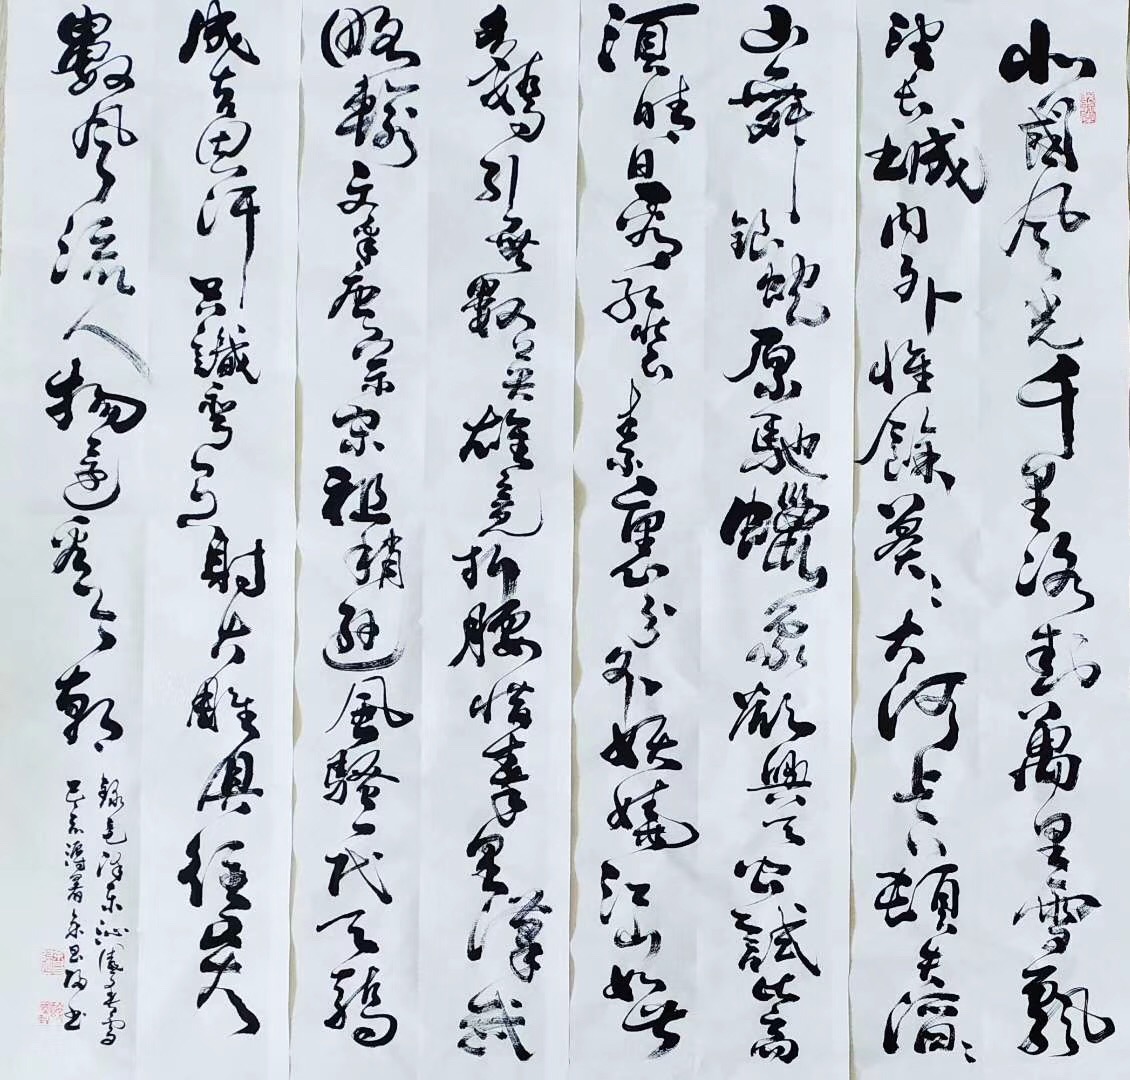 北國风光千里冰封萬里雪飄
望长城内外惟餘莽莽大河上下頓失滔滔
山舞銀蛇原馳蠟象欲與天公試比高
須晴日看紅裝素裹分外妖嬈江山如此
多嬌引無數英雄競折腰惜秦皇漢武
略輸文采唐宗宋祖稍遜風騷一代天驕
成吉思汗只識彎弓射大雕俱往矣
數风流人物還看今朝
錄毛澤东沁園春雪
己亥溽暑书